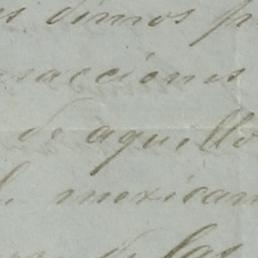 es dimos p
sacciones
de aquello
mexican
de las